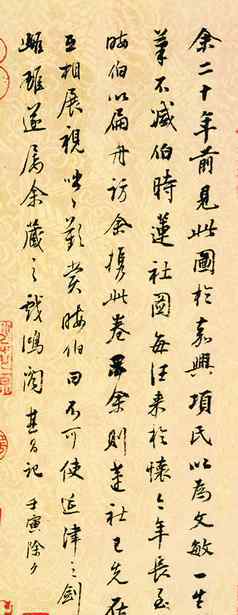 余二十年前見此圖於嘉興項氏以為文敏一生
筆不減伯時蓮社圖每往來於懷今年長至
晦伯以扁舟訪余攜此卷示余則蓮社已先在
互相展視咄〻歎賞晦伯曰不可使延津之劍
雌雄遂屬余藏之戲鴻閣其昌記壬寅除夕